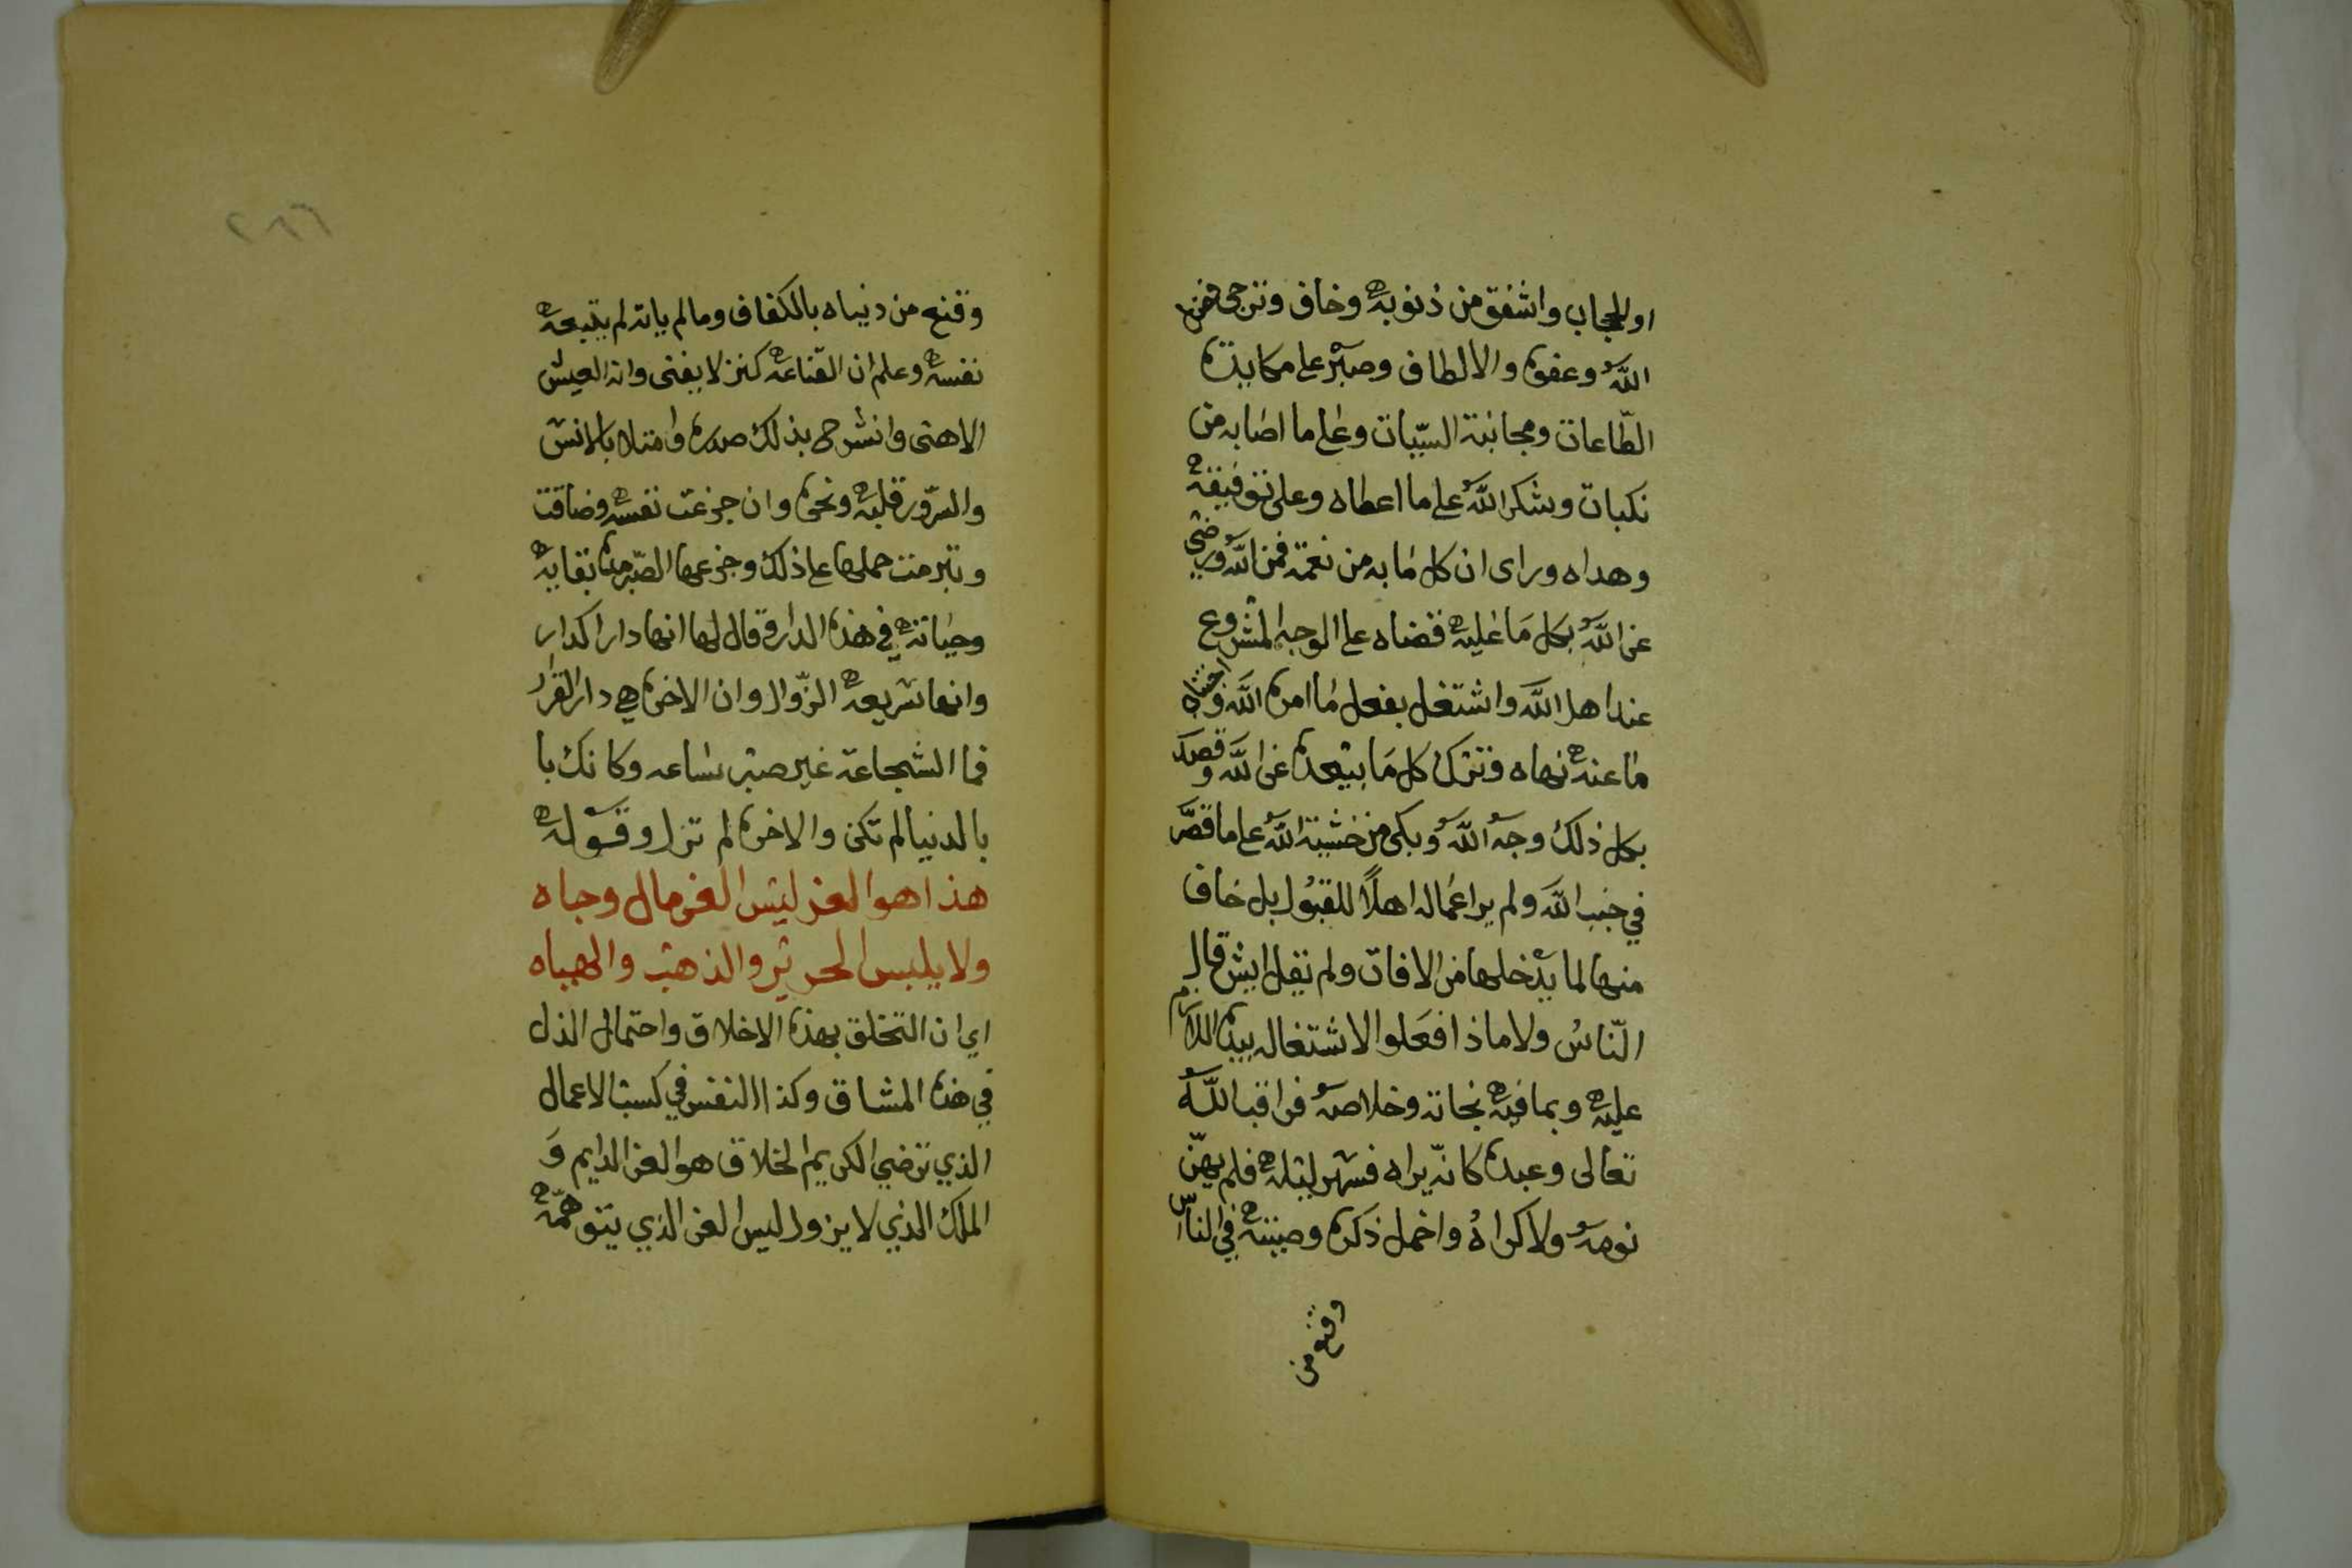 او للحجاب واشفق من ذنوبه وخاف وترجى فضل
الله وعفوه والالطاف وصبر على مكابدة
الطّاعات ومجانبة السّيّات وعلى ما اصابه من
نكبات وشكر الله على ما اعطاه وعلى توفيقه
وهداه وراى ان كل ما به من نعمة فمن الله ورضي
عن الله بكل ما عليه قضاه على الوجه المشروع
عند اهل الله واشتغل بفعل ما امره الله واخشاه
ما عنه نهاه وترك كل ما يبعده عن الله وقصد
بكل ذلك وجه الله وبكى من خشية الله على ما قصّر
في جنب الله ولم ير اعماله اهلًا للقبول بل خاف
منها لما يدخلها من الافات ولم يقل ايش قال
النّاس ولا ماذا فعلوا لاشتغاله بدينه اللازم
عليه وبما فيه نجاته وخلاصه فراقب الله
تعالى وعبده كانّه يراه فسهر ليله فلم يهنّ
نومه ولا كراهُ واخمل ذكره وصيته في الناس
وقنع من
٢٨٦
وقنع من دنياه بالكفاف وما لم ياته لم يتبعه
نفسه وعلم ان القناعة كنز لا يفنى وانه العيش
الاهنى وانشرح بذلك صدره وامتلا بالانس
والسّرور قلبه ونحره وان جزعت نفسه وضاقت
وتبرمت حملها على ذلك وجزعها الصّبر مدّة بقايه
وحياته في هذه الدار وقال لها انها دار اكدار
وانها سريعة الزّوال وان الاخرة هي دار القرار
فما الشجاعة غير صبر ساعه وكانك با
بالدنيا لم تكن والاخرة لم تزل وقوله
هذا هو العز ليس العز مال وجاه
ولا يلبس الحرير والذهب والهباه
اي ان التخلق بهذه الاخلاق واحتمال الذل
في هذه المشاق وكذا النفس في كسب الاعمال
الذي ترضي الكريم الخلاق هو العز الدايم و
الملك الذي لا يزول ليس العز الذي يتوهمّه